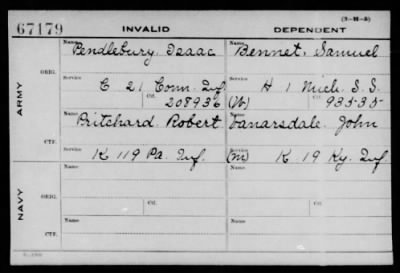 (3-M-5)
67179 INVALID DEPENDENT
Name Pendlebury, Isaac Name Bennet, Samuel
ARMY
ORIG.
Service C 21 Conn. Inf. Service H 1 Mich. S. S.
Ctf. 208936 (W) Ctf. 93535
Name Pritchard Robert Name Vanarsdale. John
CTF.
Service K 119 Pa. Inf. Service (M) K 19 Ky. Inf
NAVY
Name Name
ORIG.
Service Service
Ctf. Ctf.
Name Name
CTF.
Service Service